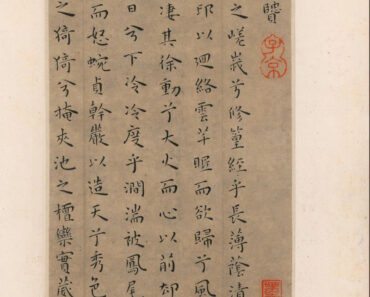 之嵯峩兮修篁經乎長薄蔭清
以迴絡雲芊眠而欲歸兮風
凄其徐動兮大火而心以前却
日兮下泠泠度乎澗湍被鳳尾
而怒蜿貞幹嚴以造天兮秀色
之猗猗兮掩夾池之檀欒實葳